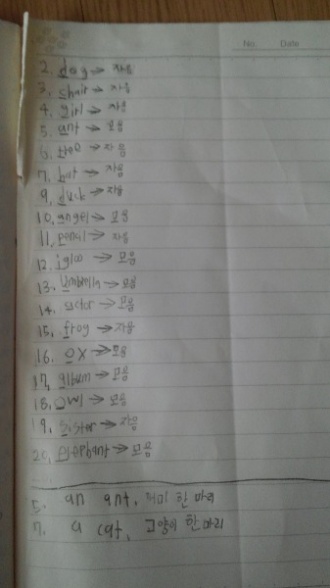 No. Date
2. dog → 자음
3. chair → 자음
4. girl → 자음
5. ant → 모음
6. tree → 자음
7. → 자음
9. duck → 자음
10. angel → 모음
11. pencil → 자음
12. igloo → 모음
13. umbrella → 모음
14. actor → 모음
15. frog → 자음
16. ox → 모음
17. album → 모음
18. owl → 모음
19. sister → 자음
20. elephant → 모음
5. an ant, 개미 한 마리
7. a cat, 고양이 한 마리